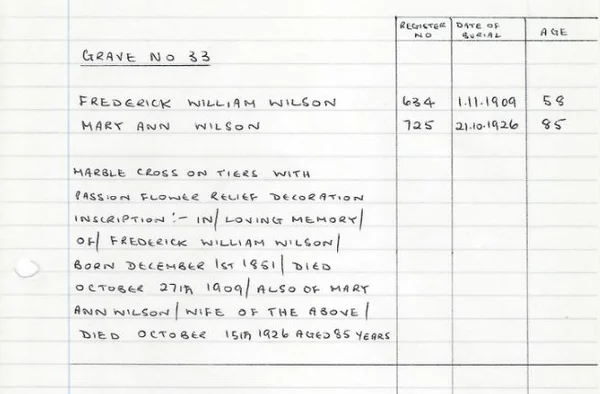 REGISTER NO
DATE OF BURIAL
AGE
GRAVE NO 33
FREDERICK WILLIAM WILSON 634 1.11.1909 58
MARY ANN WILSON 725 21.10.1926 85
MARBLE CROSS ON TIERS WITH
PASSION FLOWER RELIEF DECORATION
INSCRIPTION :- IN/ LOVING MEMORY/
OF/ FREDERICK WILLIAM WILSON/
BORN DECEMBER 1ST 1851/ DIED
OCTOBER 27TH 1909/ ALSO OF MARY
ANN WILSON/ WIFE OF THE ABOVE/
DIED OCTOBER 15TH 1926 AGED 85 YEARS